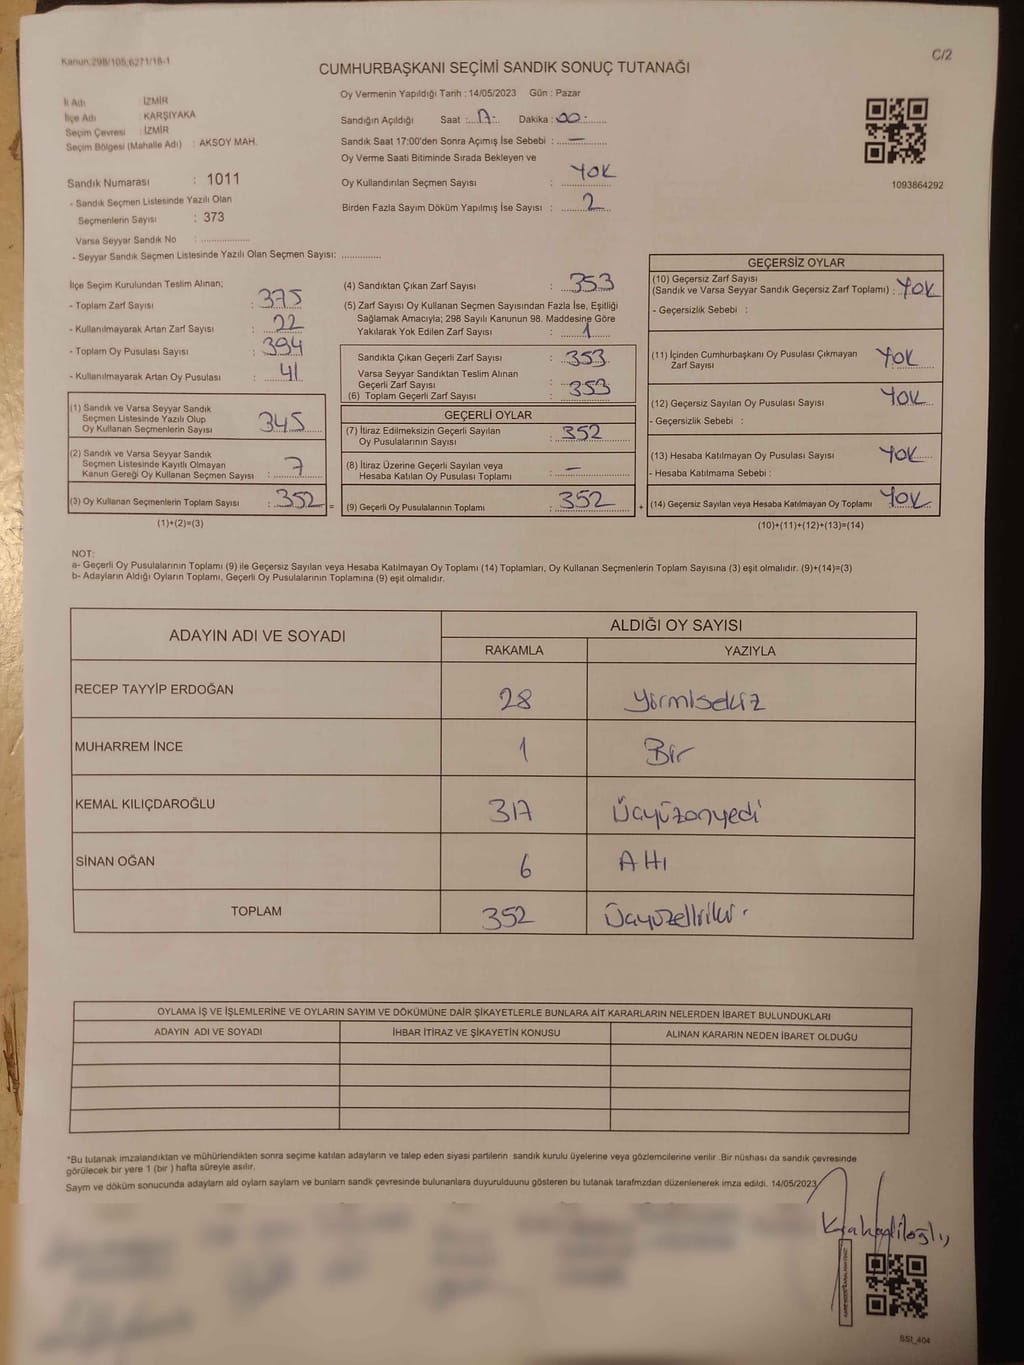 Kanun:298/105,6271/18-1
C/2
CUMHURBAŞKANI SEÇİMİ SANDIK SONUÇ TUTANAĞI
Oy Vermenin Yapıldığı Tarih : 14/05/2023 Gün : Pazar
İl Adı : İZMİR
İlçe Adı : KARŞIYAKA
Seçim Çevresi : İZMİR
Seçim Bölgesi (Mahalle Adı) : AKSOY MAH.
Sandığın Açıldığı Saat :..17.. Dakika :..00..
Sandık Saat 17:00'den Sonra Açımış İse Sebebi : —
Oy Verme Saati Bitiminde Sırada Bekleyen ve
Oy Kullandırılan Seçmen Sayısı : YOK
Birden Fazla Sayım Döküm Yapılmış İse Sayısı : 2
1093864292
Sandık Numarası : 1011
- Sandık Seçmen Listesinde Yazılı Olan
Seçmenlerin Sayısı : 373
Varsa Seyyar Sandık No : ..................
- Seyyar Sandık Seçmen Listesinde Yazılı Olan Seçmen Sayısı: ..............
İlçe Seçim Kurulundan Teslim Alınan;
- Toplam Zarf Sayısı : 375
- Kullanılmayarak Artan Zarf Sayısı : 22
- Toplam Oy Pusulası Sayısı : 394
- Kullanılmayarak Artan Oy Pusulası : 41
(1) Sandık ve Varsa Seyyar Sandık
Seçmen Listesinde Yazılı Olup
Oy Kullanan Seçmenlerin Sayısı : 345
(2) Sandık ve Varsa Seyyar Sandık
Seçmen Listesinde Kayıtlı Olmayan
Kanun Gereği Oy Kullanan Seçmen Sayısı : 7
(3) Oy Kullanan Seçmenlerin Toplam Sayısı : 352 =
(1)+(2)=(3)
(4) Sandıktan Çıkan Zarf Sayısı : 353
(5) Zarf Sayısı Oy Kullanan Seçmen Sayısından Fazla İse, Eşitliği
Sağlamak Amacıyla; 298 Sayılı Kanunun 98. Maddesine Göre
Yakılarak Yok Edilen Zarf Sayısı : 1
Sandıkta Çıkan Geçerli Zarf Sayısı : 353
Varsa Seyyar Sandıktan Teslim Alınan
Geçerli Zarf Sayısı :
(6) Toplam Geçerli Zarf Sayısı : 353
GEÇERLİ OYLAR
(7) İtiraz Edilmeksizin Geçerli Sayılan
Oy Pusulalarının Sayısı : 352
(8) İtiraz Üzerine Geçerli Sayılan veya
Hesaba Katılan Oy Pusulası Toplamı : —
(9) Geçerli Oy Pusulalarının Toplamı : 352 +
GEÇERSİZ OYLAR
(10) Geçersiz Zarf Sayısı
(Sandık ve Varsa Seyyar Sandık Geçersiz Zarf Toplamı) : YOK
- Geçersizlik Sebebi :
(11) İçinden Cumhurbaşkanı Oy Pusulası Çıkmayan
Zarf Sayısı YOK
(12) Geçersiz Sayılan Oy Pusulası Sayısı YOK
- Geçersizlik Sebebi :
(13) Hesaba Katılmayan Oy Pusulası Sayısı YOK
- Hesaba Katılmama Sebebi :
(14) Geçersiz Sayılan veya Hesaba Katılmayan Oy Toplamı YOK
(10)+(11)+(12)+(13)=(14)
NOT:
a- Geçerli Oy Pusulalarının Toplamı (9) ile Geçersiz Sayılan veya Hesaba Katılmayan Oy Toplamı (14) Toplamları, Oy Kullanan Seçmenlerin Toplam Sayısına (3) eşit olmalıdır. (9)+(14)=(3)
b- Adayların Aldığı Oyların Toplamı, Geçerli Oy Pusulalarının Toplamına (9) eşit olmalıdır.
ADAYIN ADI VE SOYADI
ALDIĞI OY SAYISI
RAKAMLA YAZIYLA
RECEP TAYYİP ERDOĞAN 28 Yirmisekiz
MUHARREM İNCE 1 Bir
KEMAL KILIÇDAROĞLU 317 Üçyüzonyedi
SİNAN OĞAN 6 Altı
TOPLAM 352 Üçyüzelliiki.
OYLAMA İŞ VE İŞLEMLERİNE VE OYLARIN SAYIM VE DÖKÜMÜNE DAİR ŞİKAYETLERLE BUNLARA AİT KARARLARIN NELERDEN İBARET BULUNDUKLARI
ADAYIN ADI VE SOYADI İHBAR İTİRAZ VE ŞİKAYETİN KONUSU ALINAN KARARIN NEDEN İBARET OLDUĞU
*Bu tutanak imzalandıktan ve mühürlendikten sonra seçime katılan adayların ve talep eden siyasi partilerin sandık kurulu üyelerine veya gözlemcilerine verilir .Bir nüshası da sandık çevresinde
görülecek bir yere 1 (bir ) hafta süreyle asılır.
Saym ve döküm sonucunda adaylarn ald oylarn saylarn ve bunlarn sandk çevresinde bulunanlara duyurulduunu gösteren bu tutanak tarafmzdan düzenlenerek imza edildi. 14/05/2023
SSI_404